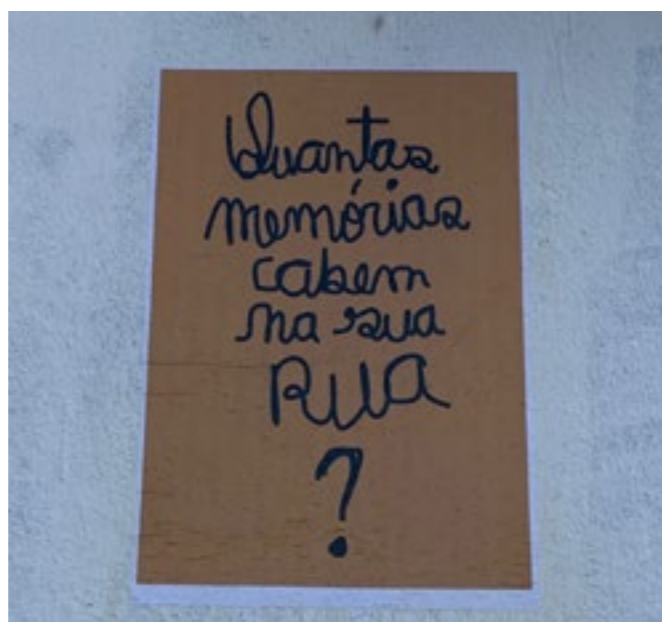 Quantas
memórias
cabem
na sua
RUA
?